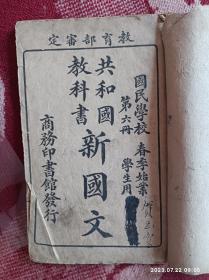 教育部審定
國民學校 春季始業
第六冊 學生用
共和國
教科書
新國文
商務印書館發行
2023.07.22 09:23